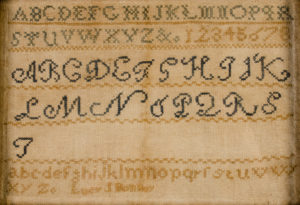 ABCDEFGHIJKLMNOPQR
STUVWXYZ&. 12345678
ABCDEFGHIJK
LMNOPQRS
T
abcdefghijklmnopqrstuvw
XYZ